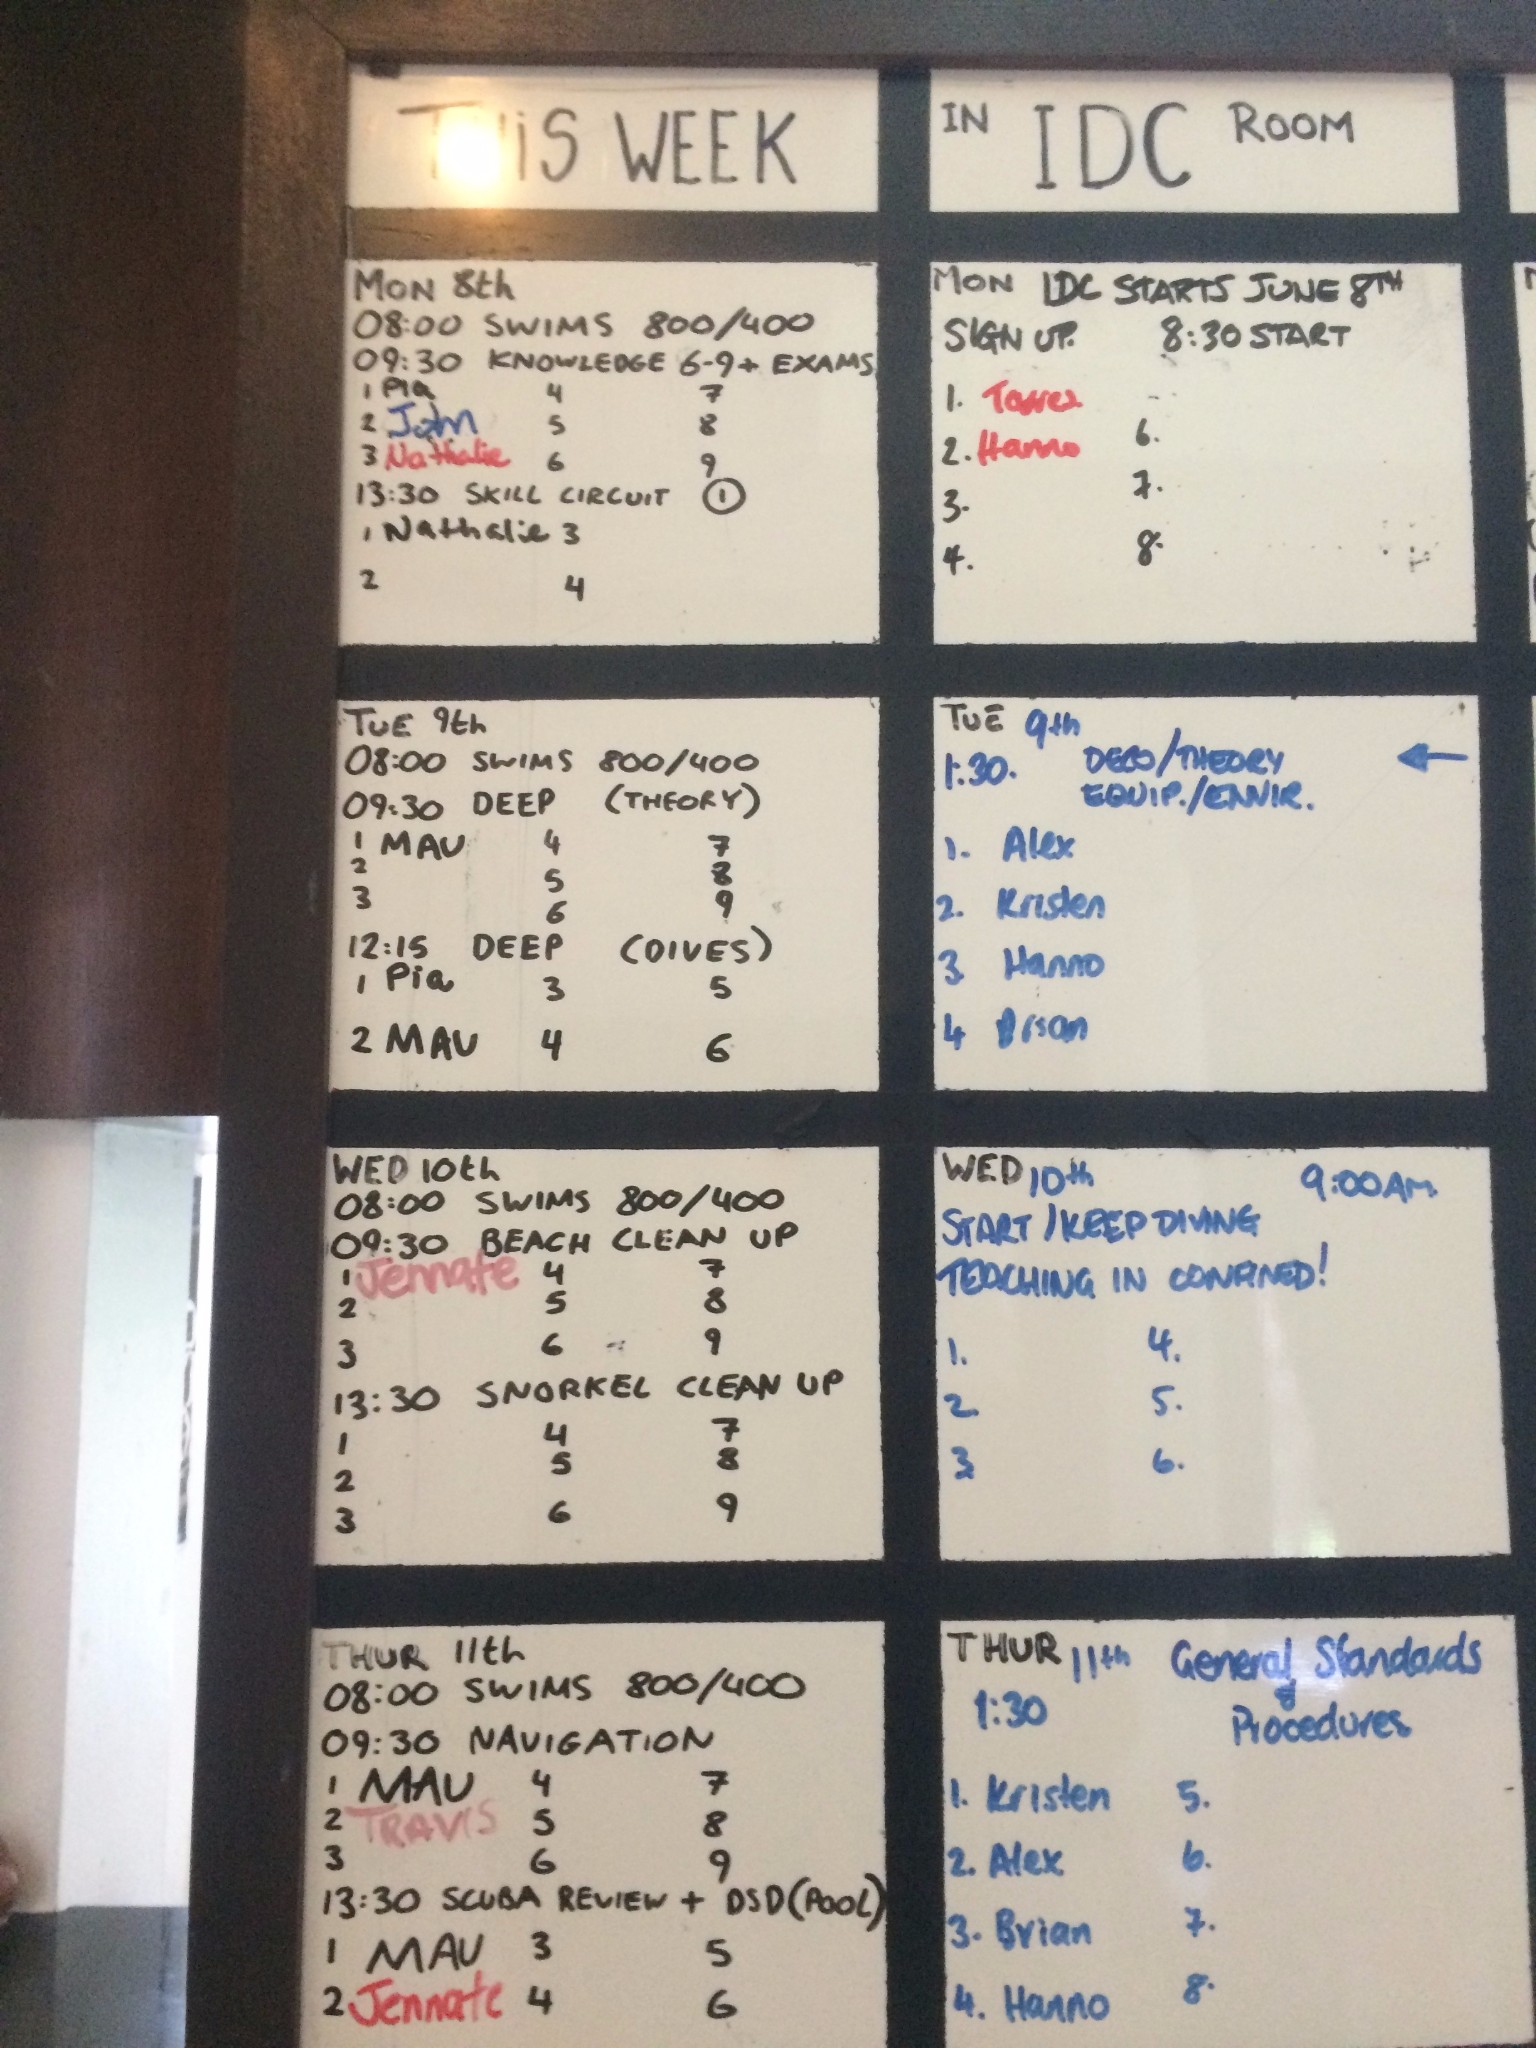 THIS WEEK
MON 8th
08:00 SWIMS 800/400
09:30 KNOWLEDGE 6-9 + EXAMS
1 Pia 4 7
2 John 5 8
3 Nathalie 6 9
13:30 SKILL CIRCUIT 1
1 Nathalie 3
2 4
TUE 9th
08:00 SWIMS 800/400
09:30 DEEP (THEORY)
1 MAU 4 7
2 5 8
3 6 9
12:15 DEEP (DIVES)
1 Pia 3 5
2 MAU 4 6
WED 10th
08:00 SWIMS 800/400
09:30 BEACH CLEAN UP
1 Jennate 4 7
2 5 8
3 6 9
13:30 SNORKEL CLEAN UP
1 4 7
2 5 8
3 6 9
THUR 11th
08:00 SWIMS 800/400
09:30 NAVIGATION
1 MAU 4 7
2 TRAVIS 5 8
3 6 9
13:30 SCUBA REVIEW + DSD (POOL)
1 MAU 3 5
2 Jennate 4 6
IN IDC ROOM
MON IDC STARTS JUNE 8TH
SIGN UP. 8:30 START
1.
2. Hanno 6.
3. 7.
4. 8.
TUE 9th
1:30. DECO/THEORY ←
EQUIP./ENVIR.
1. Alex
2. Kristen
3. Hanno
4 Brian
WED 10th 9:00AM
START/KEEP DIVING
TEACHING IN CONFINED!
1. 4.
2. 5.
3. 6.
THUR 11th General Standards
1:30 & Procedures
1. Kristen 5.
2. Alex 6.
3. Brian 7.
4. Hanno 8.